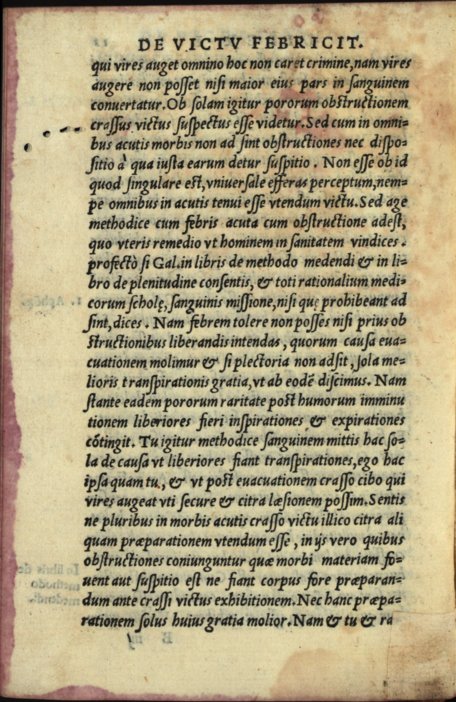 DE VICTV FEBRICIT.
qui vires auget omnino hoc non caret crimine, nam vires
augere non posset nisi maior eius pars in sanguinem
conuertatur. Ob solam igitur pororum obstructionem
crassus victus suspectus esse videtur. Sed cum in omni=
bus acutis morbis non ad sint obstructiones nec dispo=
sitio à qua iusta earum detur suspitio. Non esse ob id
quod singulare est, vniuersale efferas perceptum, nem=
pe omnibus in acutis tenui esse vtendum victu. Sed age
methodice cum febris acuta cum obstructione adest,
quo vteris remedio vt hominem in sanitatem vindices.
profectò si Gal. in libris de methodo medendi & in li=
bro de plenitudine consentis, & toti rationalium medi=
corum scholę, sanguinis missione, nisi quę prohibeant ad
sint, dices. Nam febrem tolere non posses nisi prius ob
structionibus liberandis intendas, quorum causa eua=
cuationem molimur & si plectoria non adsit, sola me=
lioris transpirationis gratia, vt ab eodē discimus. Nam
stante eadem pororum raritate post humorum imminu
tionem liberiores fieri inspirationes & expirationes
cōtingit. Tu igitur methodice sanguinem mittis hac so=
la de causa vt liberiores fiant transpirationes, ego hac
ipsa quam tu, & vt post euacuationem crasso cibo qui
vires augeat vti secure & citra læsionem possim. Sentis
ne pluribus in morbis acutis crasso victu illico citra ali
quam præparationem vtendum esse, in ijs vero quibus
obstructiones coniunguntur quæ morbi materiam fo=
uent aut suspitio est ne fiant corpus fore præparan=
dum ante crassi victus exhibitionem. Nec hanc præpa=
rationem solus huius gratia molior. Nam & tu & ra